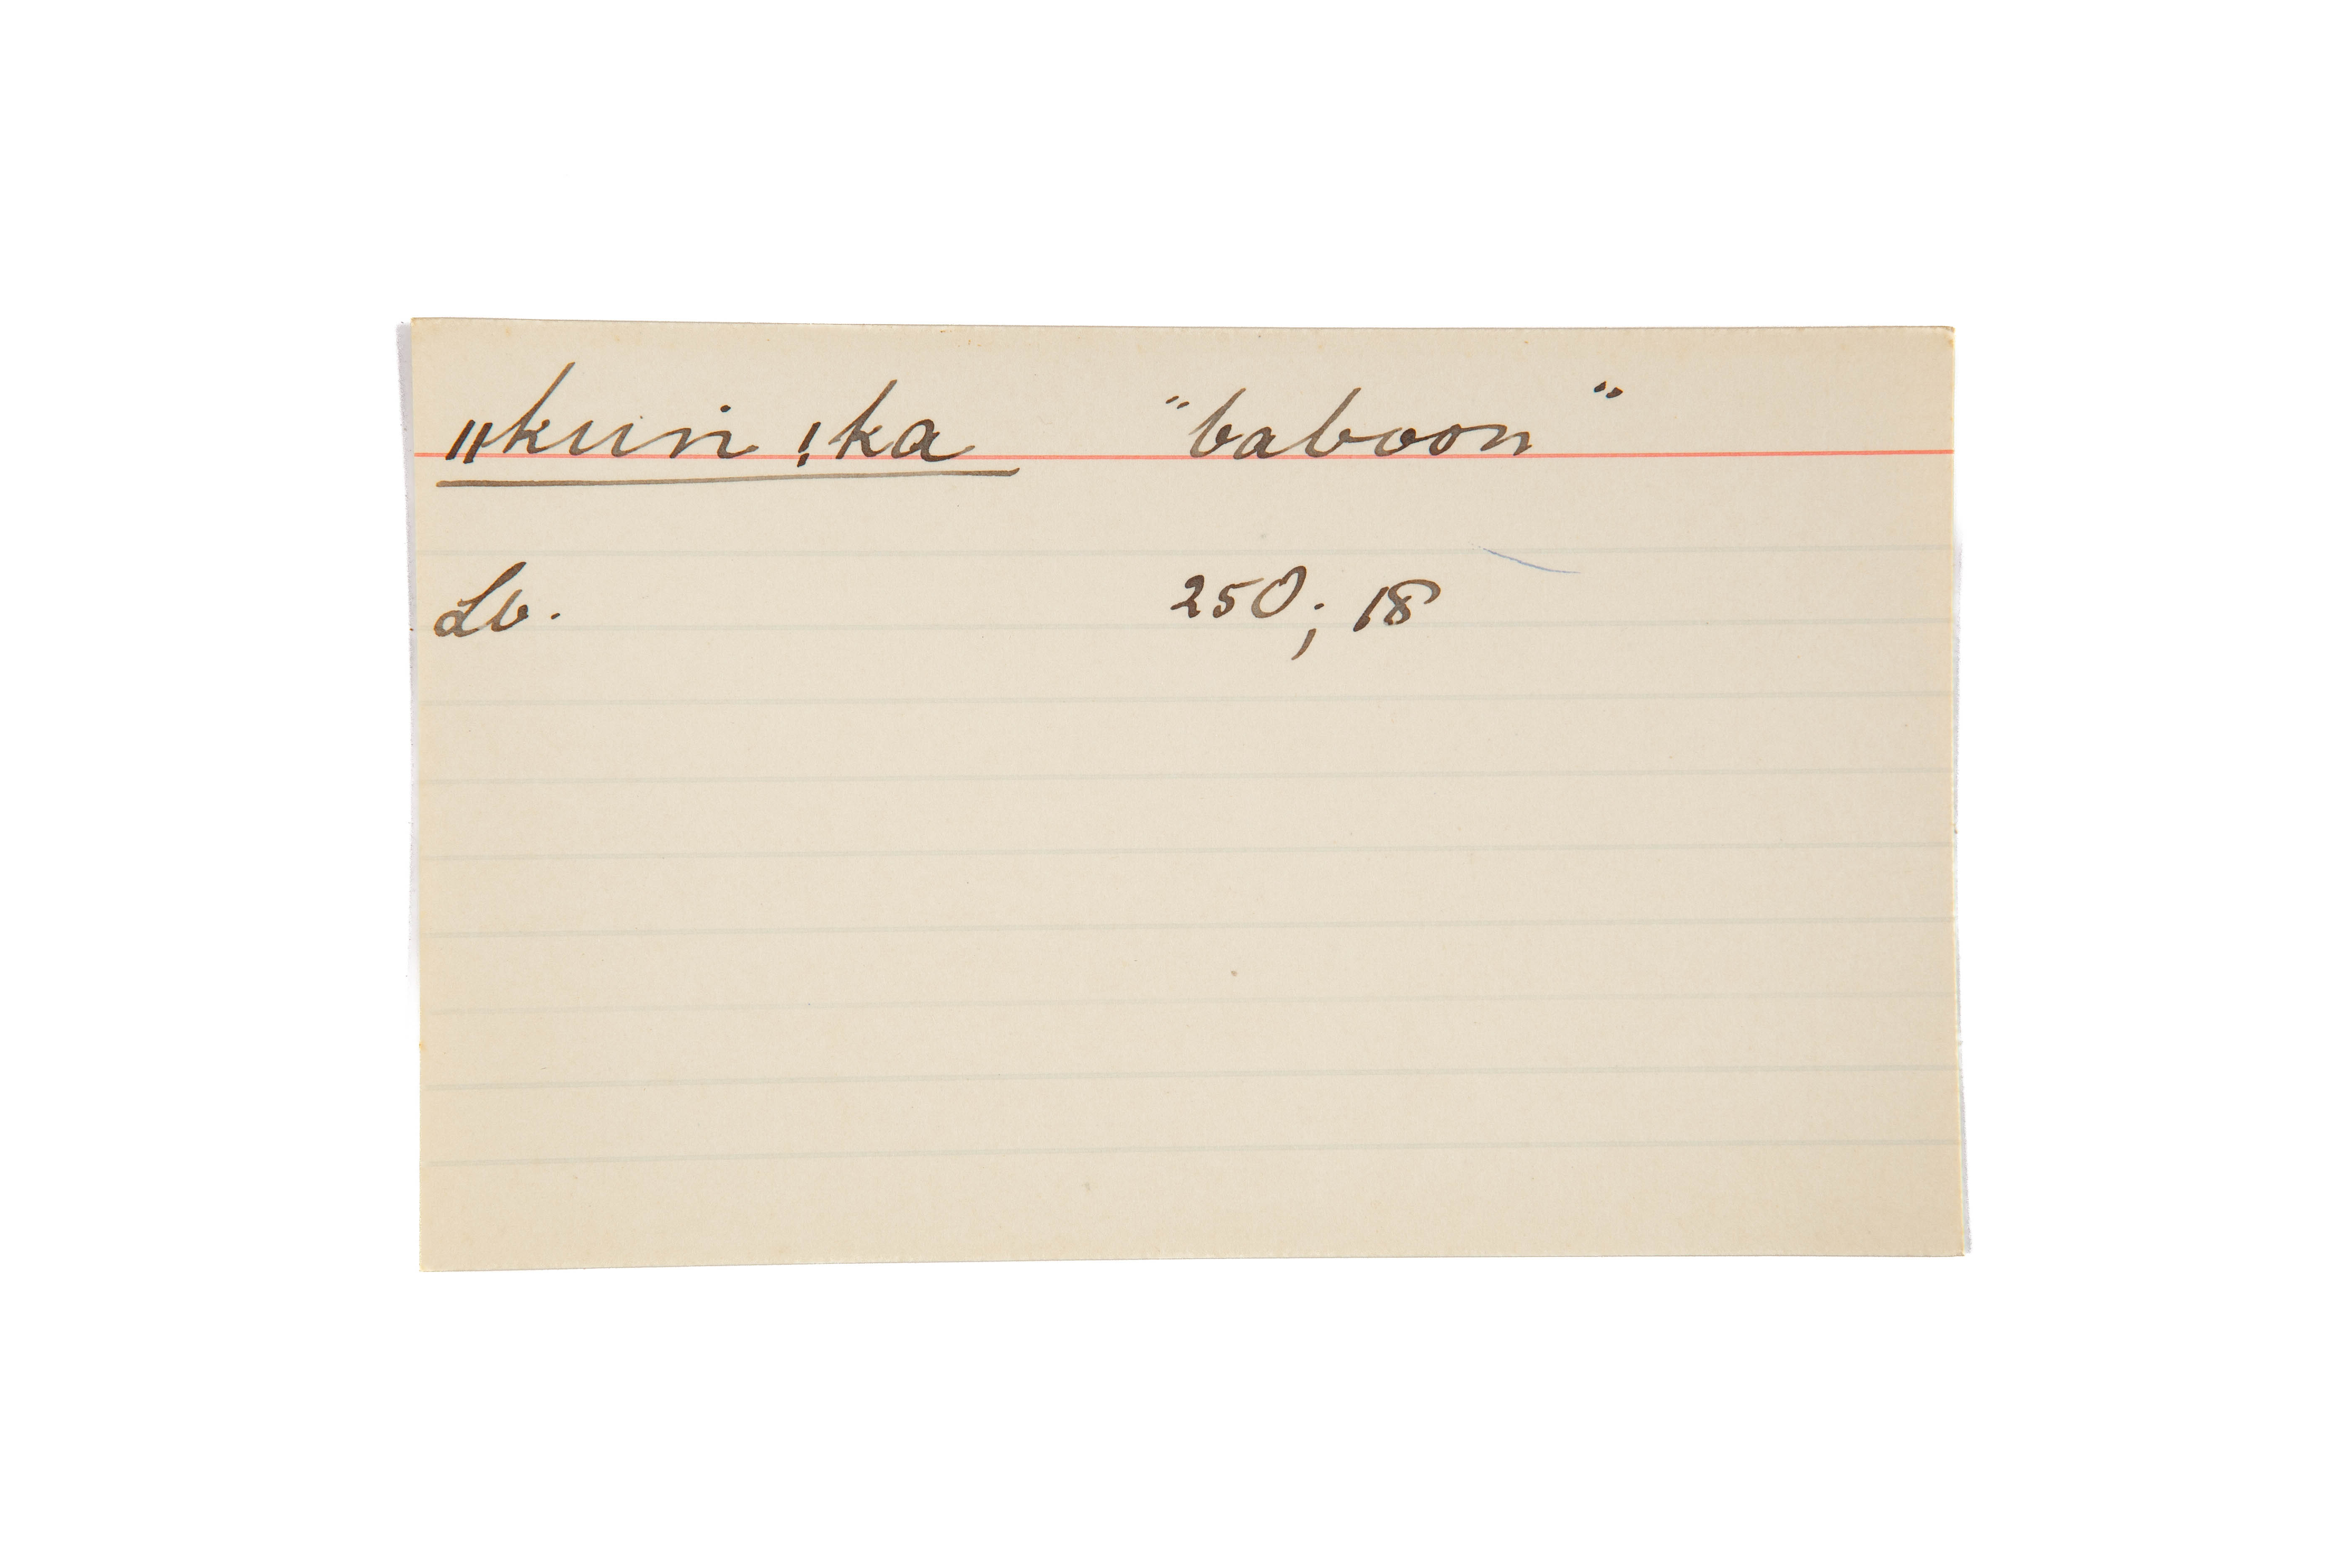 ǁkuin !ka "baboon"
Lb. 250; 18